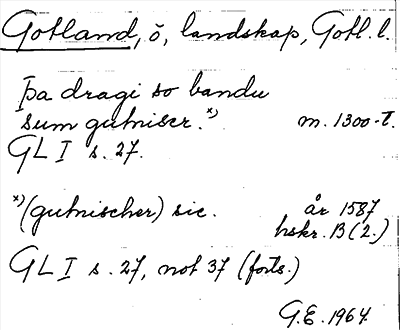 Gotland, ö, landskap, Gotl. l.
Þa dragi so bandu
sum gutniscr. x) m. 1300-t.
GL I s. 27.
x) (gutnischer) sic. år 1587
hskr. B (2.)
GL I s. 27, not 37 (forts.)
G.E. 1964.